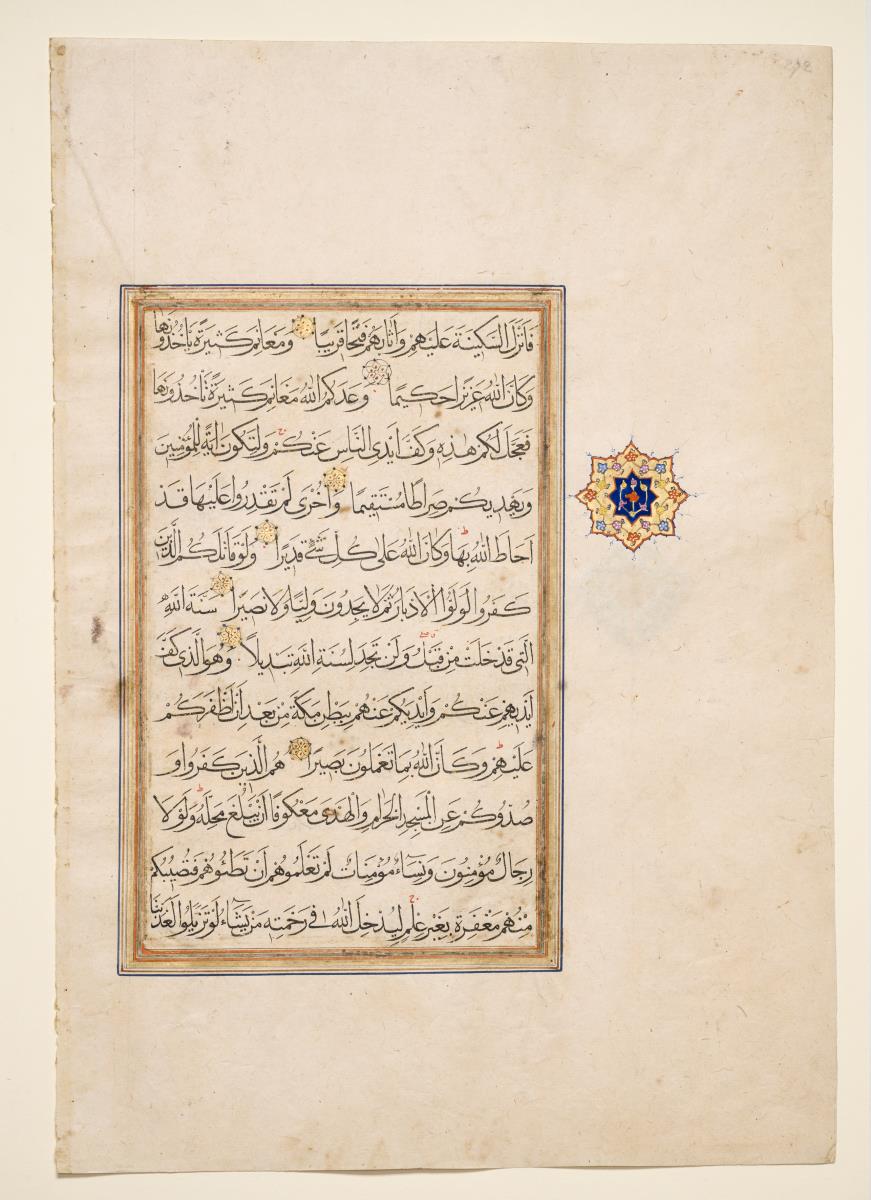 فَاَنْزَلَ السَّكِينَةَ عَلَيْهِمْ وَاَثَابَهُمْ فَتْحًا قَرِيبًا وَمَغَانِمَ كَثِيرَةً يَاْخُذُونَهَا
وَكَانَ اللّٰهُ عَزِيزًا حَكِيمًا وَعَدَكُمُ اللّٰهُ مَغَانِمَ كَثِيرَةً تَاْخُذُونَهَا
فَعَجَّلَ لَكُمْ هٰذِهِ وَكَفَّ اَيْدِىَ النَّاسِ عَنْكُمْ وَلِتَكُونَ اٰيَةً لِلْمُؤْمِنِينَ
وَيَهْدِيَكُمْ صِرَاطًا مُسْتَقِيمًا وَاُخْرٰى لَمْ تَقْدِرُوا عَلَيْهَا قَدْ
اَحَاطَ اللّٰهُ بِهَا وَكَانَ اللّٰهُ عَلٰى كُلِّ شَىْءٍ قَدِيرًا وَلَوْ قَاتَلَكُمُ الَّذِينَ
كَفَرُوا لَوَلَّوُا الْاَدْبَارَ ثُمَّ لَا يَجِدُونَ وَلِيًّا وَلَا نَصِيرًا سُنَّةَ اللّٰهِ
الَّتِى قَدْ خَلَتْ مِنْ قَبْلُ وَلَنْ تَجِدَ لِسُنَّةِ اللّٰهِ تَبْدِيلًا وَهُوَ الَّذِى كَفَّ
اَيْدِيَهُمْ عَنْكُمْ وَاَيْدِيَكُمْ عَنْهُمْ بِبَطْنِ مَكَّةَ مِنْ بَعْدِ اَنْ اَظْفَرَكُمْ
عَلَيْهِمْ وَكَانَ اللّٰهُ بِمَا تَعْمَلُونَ بَصِيرًا هُمُ الَّذِينَ كَفَرُوا وَ
صَدُّوكُمْ عَنِ الْمَسْجِدِ الْحَرَامِ وَالْهَدْىَ مَعْكُوفًا اَنْ يَبْلُغَ مَحِلَّهُ وَلَوْلَا
رِجَالٌ مُؤْمِنُونَ وَنِسَاءٌ مُؤْمِنَاتٌ لَمْ تَعْلَمُوهُمْ اَنْ تَطَئُوهُمْ فَتُصِيبَكُمْ
مِنْهُمْ مَغْفِرَةٌ بِغَيْرِ عِلْمٍ لِيُدْخِلَ اللّٰهُ فِى رَحْمَتِهِ مَنْ يَشَاءُ لَوْ تَزَيَّلُوا لَعَذَّبْنَا